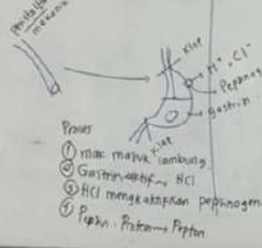 peristaltik
mekanik
klep
H⁺, Cl⁻
Pepsinog
gastrin
klep
Proses
① mak masuk lambung.
② Gastrin aktif → HCl
③ HCl mengkaktifkan pepsinogen
④ Pepsin : Protein → Pepton